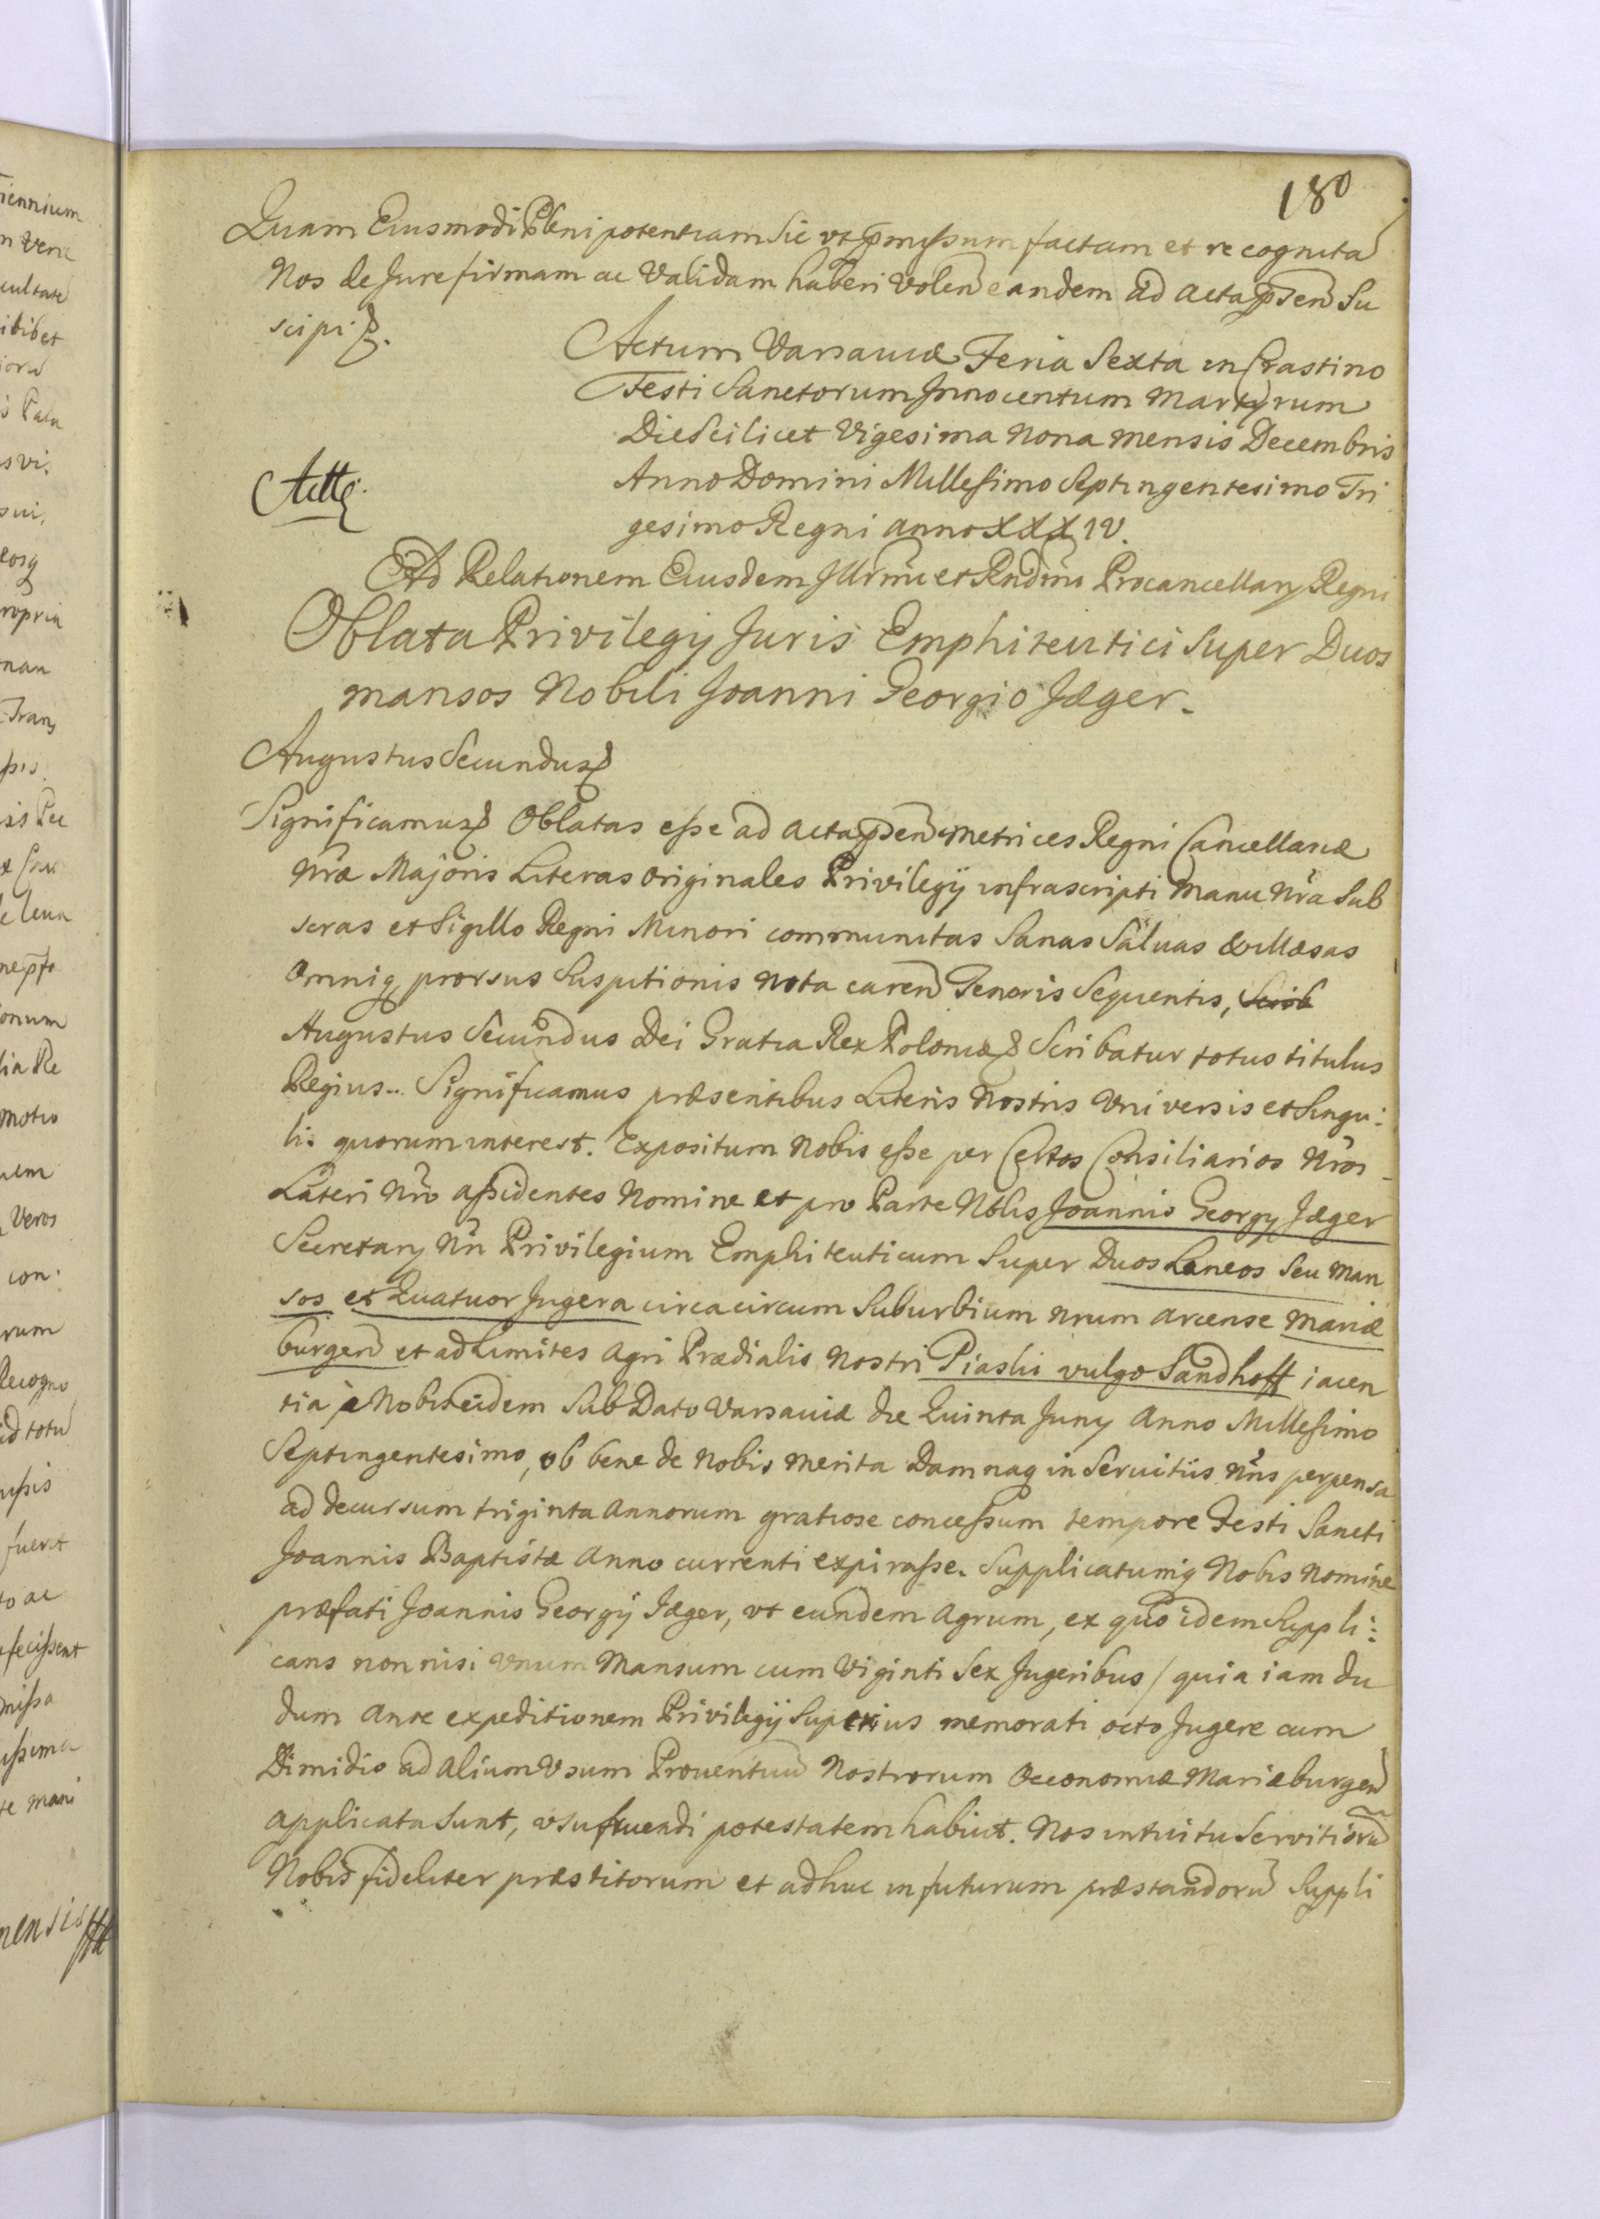 180
Quam Eiusmodi Plenipotentiam Sic vt p̄missum factam et recognitā
Nos de Jure firmam ac Validam haberi Volen̄ eandem ad acta p̄sen̄ Su
scipi &.
Actum Varsaviæ Feria Sexta in Crastino
Festi Sanctorum Innocentum Martyrum
Die Scilicet Vigesima Nona mensis Decembris
Anno Domini Millesimo Septingentesimo Tri
gesimo Regni anno XXXIV.
Ad Relationem Eiusdem Illr̄mi et Rndmi Procancellarij Regni
Oblata Privilegij Juris Emphiteutici Super Duos
mansos Nobili Joanni Georgio Jæger.
Augustus Secundus &
Significamus & Oblatas esse ad acta p̄sen̄ Metrices Regni Cancellariæ
Nr̄æ Majoris Literas originales Privilegij infrascripti Manu Nr̄a Sub
scras et Sigillo Regni Minori communitas Sanas Saluas & illæsas
Omniq prorsus Suspitionis Nota caren̄ Tenoris Sequentis,
Augustus Secundus Dei Gratia Rex Poloniæ & Scribatur totus titulus
Regius.. Significamus præsentibus Literis Nostris Vniversis et Singu:
lis quorum interest. Expositum Nobis esse per Certos Consiliarios Nr̄os
Lateri Nr̄o assidentes Nomine et pro Parte Nblis Joannis Georgij Jæger
Secretarij Nr̄i Privilegium Emphiteuticum Super Duos Laneos Seu Man
sos et Quatuor Jugera circacircum Suburbium Nrum arcense Mariæ
burgen̄ et ad Limites Agri Prædialis Nostri Piaski vulgo Sandhoff iacen
tia à Nobis eidem Sub Dato Varsaviæ die Quinta Junij Anno Millesimo
Septingentesimo, ob bene de Nobis Merita Damnaq in Servitiis Nr̄is perpensa
ad decursum triginta Annorum gratiose concessum tempore Festi Sancti
Joannis Baptistæ Anno currenti expirasse. Supplicatumq Nobis Nomine
præfati Joannis Georgij Jæger, vt eundem Agrum, ex quo idem Suppli:
cans non nisi Vnum Mansum cum Viginti Sex Jugeribus / quia iam du
dum ante expeditionem Privilegij Superius memorati octo Jugere cum
Dimidio ad alium Vsum Prouentuū Nostrorum Oeconomiæ Mariæburgen̄
applicata Sunt, vsufruendi potestatem habuit. Nos intuitu Servitiorū
Nobis fideliter præstitorum et adhuc in futurum præstandorū Suppli